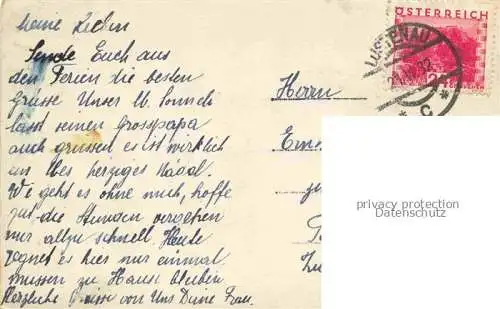 Meine Lieben
Sende Euch aus
den Ferien die besten
Grüsse Unser
lasst seinen Grosspapa
auch grüssen es ist wirklich
ein lbes herziges Mädal.
We geht es ohne mich, hoffe
das die Stunden vergehen
nur allzu schnell Heute
regnet es hier nur einmal
müssen zu Hause bleiben
Herzliche Grüsse von Uns Deine Frau.
Herrn
ÖSTERREICH
LUSTENAU
* C *
privacy protection
Datenschutz